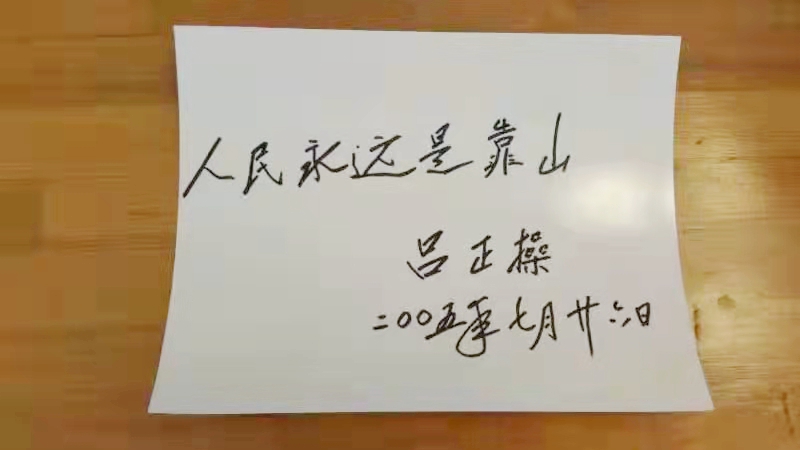 人民永远是靠山
吕正操
二〇〇五年七月廿六日